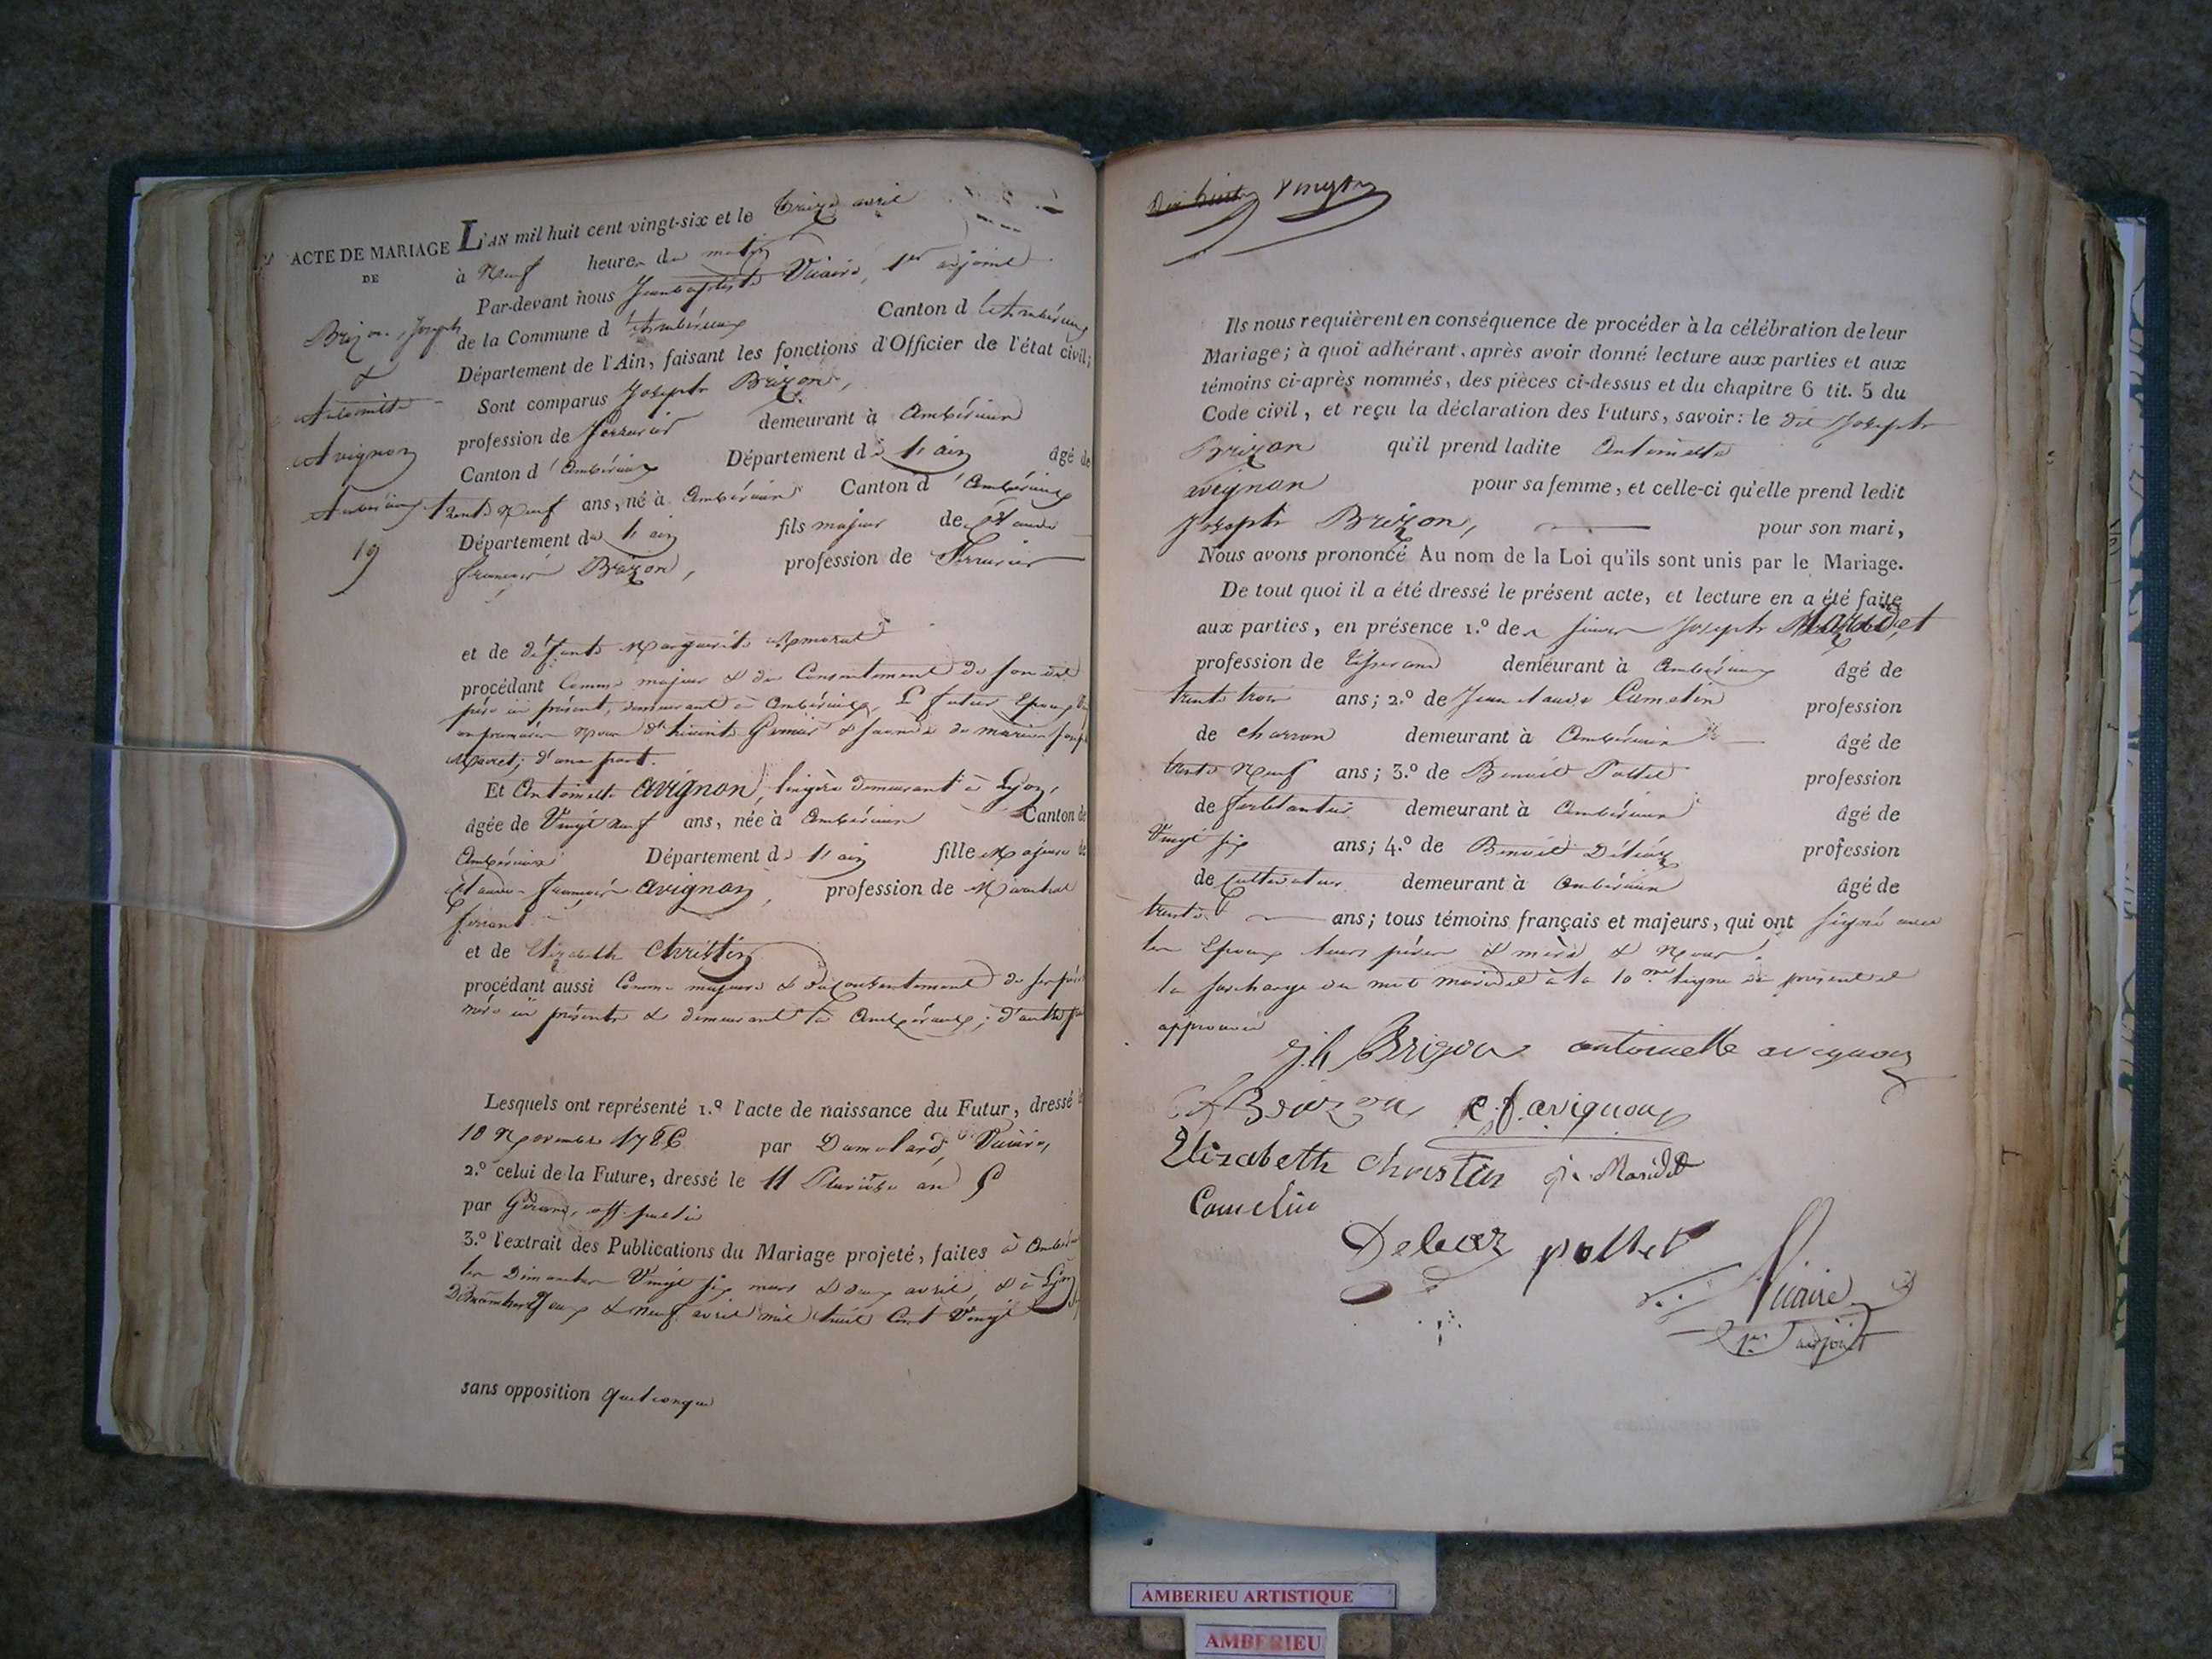 ACTE DE MARIAGE
DE
Brizon, Joseph
&
Antoinette
Avignon
Ambérieux
19
L'AN mil huit cent vingt-six et le treize avril
à Neuf heures du matin
Par-devant nous Jean baptiste Vicaire, 1er adjoint
de la Commune d'Ambérieux Canton d'Ambérieux
Département de l'Ain, faisant les fonctions d'Officier de l'état civil;
Sont comparus Joseph Brizon,
profession de ferrurier demeurant à Ambérieux
Canton d'Ambérieux Département de l'ain âgé de
trente Neuf ans, né à Ambérieux Canton d'Ambérieux
Département de l'ain fils majeur de Claude
françois Brizon, profession de Serrurier
et de défunte Marguerite
procédant Comme majeur & du Consentement de son dit
père ici présent, demeurant à Ambérieux, Le futur Epoux
en premières Noces d'hiacinte Garnier & secondes de marie
Maret; d'une part.
Et Antoinette avignon, lingère demeurant à Lyon,
âgée de Vingt Neuf ans, née à Ambérieux Canton de
Ambérieux Département de l'ain fille Majeure de
Claude françois avignon, profession de Maréchal
ferrant
et de Elizabeth Christin
procédant aussi Comme majeure & du Consentement de ses père
mère ici présents & demeurant à Ambérieux; d'autre part
Lesquels ont représenté 1.º l'acte de naissance du Futur, dressé le
10 Novembre 1786 par Dumolard, Vicaire,
2.º celui de la Future, dressé le 11 Pluviôse an 5
par Girard, off. public
3.º l'extrait des Publications du Mariage projeté, faites à Ambérieux
les Dimanches Vingt six mars & deux avril, & à Lyon
Dimanches deux & neuf avril mil huit Cent Vingt
sans opposition quelconque
Dix huit Vingt
Ils nous requièrent en conséquence de procéder à la célébration de leur
Mariage; à quoi adhérant, après avoir donné lecture aux parties et aux
témoins ci-après nommés, des pièces ci-dessus et du chapitre 6 tit. 5 du
Code civil, et reçu la déclaration des Futurs, savoir: le dit Joseph
Brizon qu'il prend ladite Antoinette
avignon pour sa femme, et celle-ci qu'elle prend ledit
Joseph Brizon, pour son mari,
Nous avons prononcé Au nom de la Loi qu'ils sont unis par le Mariage.
De tout quoi il a été dressé le présent acte, et lecture en a été faite
aux parties, en présence 1.º des sieurs Joseph Maridet
profession de tisserand demeurant à Ambérieux âgé de
trente trois ans; 2.º de Jean Claude Camelin profession
de charron demeurant à Ambérieux âgé de
trente Neuf ans; 3.º de Benoit Pollet profession
de ferblantier demeurant à Ambérieux âgé de
Vingt six ans; 4.º de Benoit Déléaz profession
de Cultivateur demeurant à Ambérieux âgé de
trente ans; tous témoins français et majeurs, qui ont signé avec
les Epoux leurs pères & mère & Nous.
la surcharge du mot maridet à la 10me ligne du présent est
approuvée
jh Brizon antoinette avignon
Cf Brizon c. f. avignon
Elizabeth christin j. Maridet
Camelin
Deleaz pollet
Vicaire
1er adjoint
AMBERIEU ARTISTIQUE
AMBERIEU